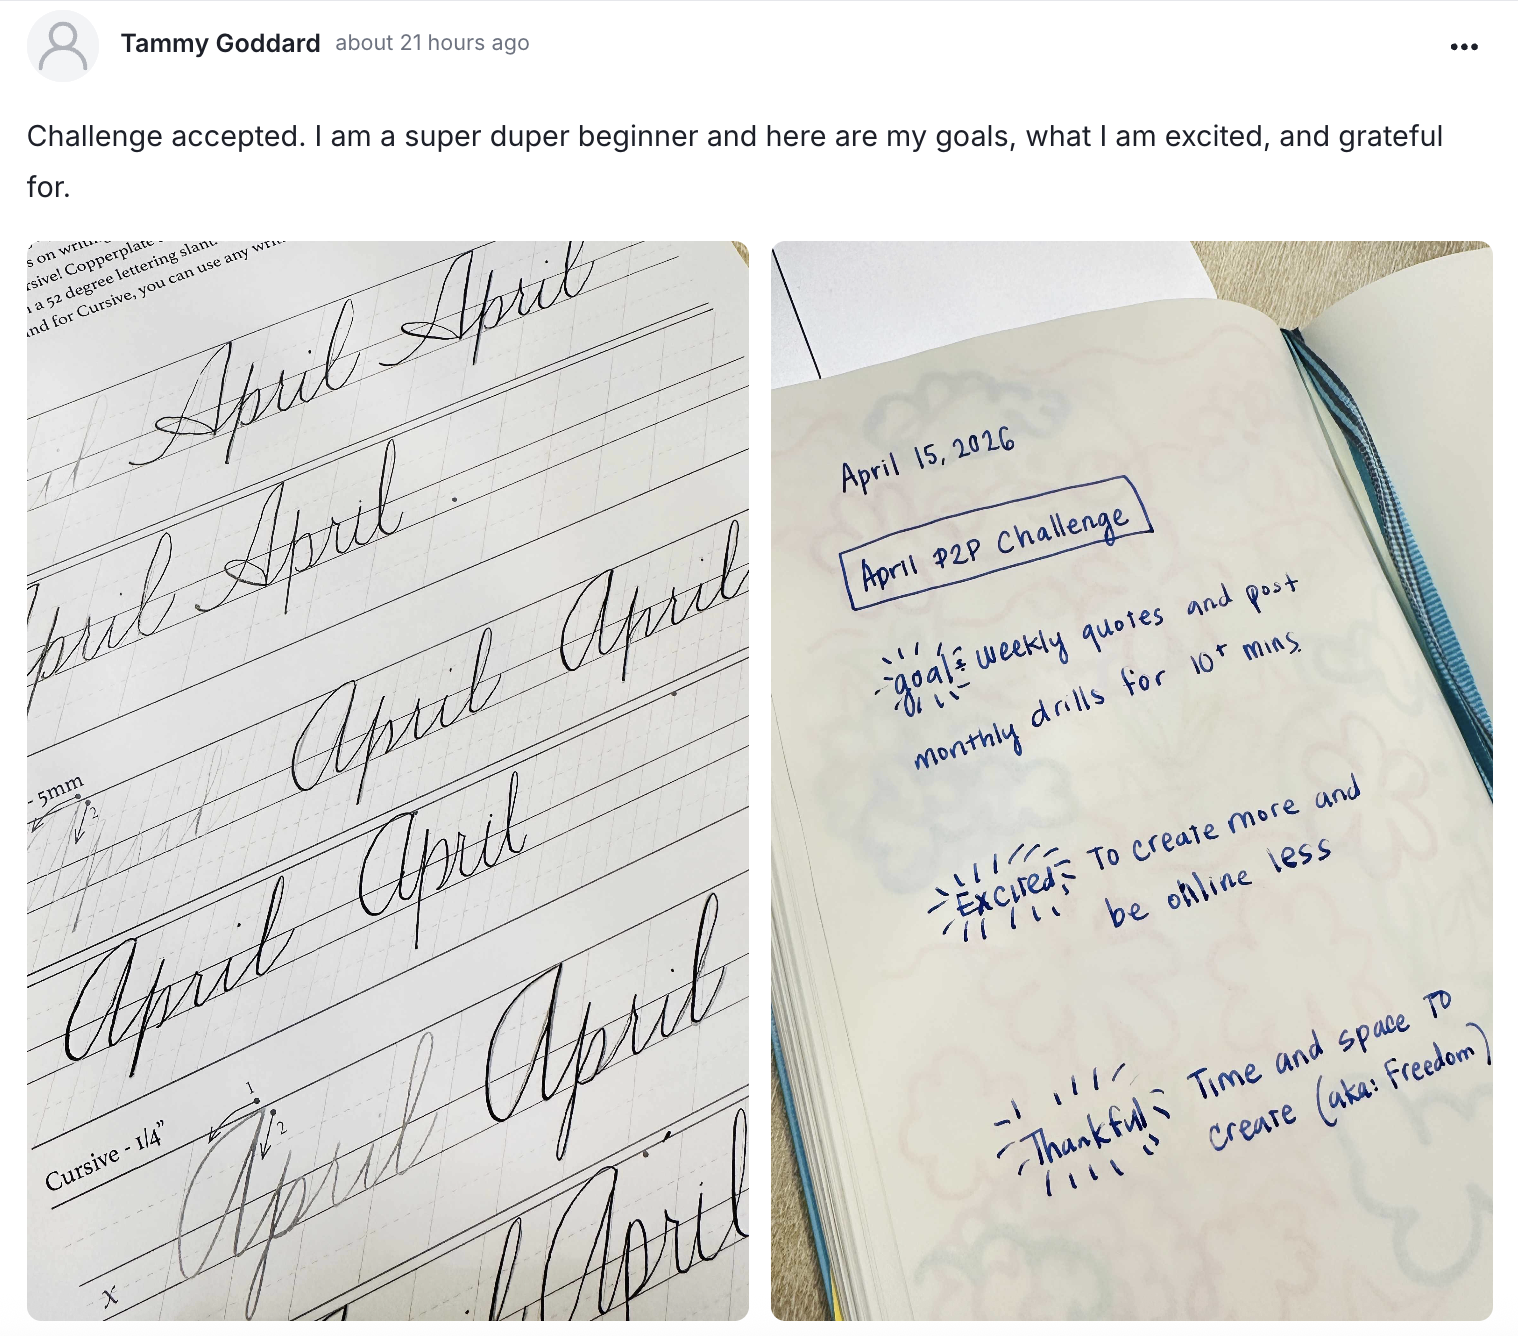 Tammy Goddard about 21 hours ago
Challenge accepted. I am a super duper beginner and here are my goals, what I am excited, and grateful
for.
s on
rsive! Copperplate
a 52 degree lettering slant
nd for Cursive, you can use any
April April
pril April
April April
- 5mm
2
April April
April
1
2
Cursive - 1/4”
April
April
x
April 15, 2026
April P2P Challenge
goal: weekly quotes and post
monthly drills for 10+ mins.
Excited: To create more and
be online less
Thankful: Time and space to
create (aka: Freedom)